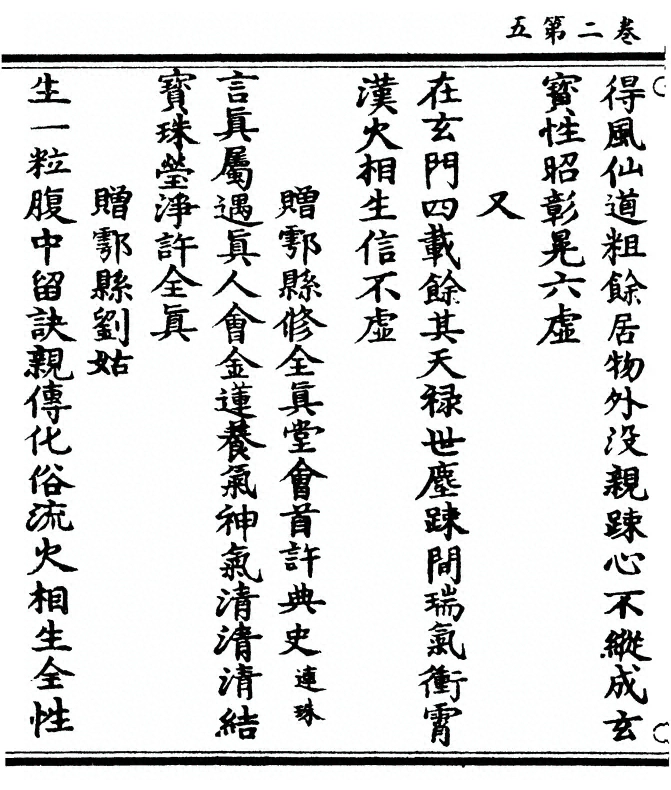 卷二第五
得風仙道粗餘居物外没親踈心不縱成玄
寳性昭彰晃六虚
又
在玄門四載餘其天禄世塵踈間瑞氣衝霄
漢火相生信不虚
贈鄠縣修全眞堂會首許典史連珠
言眞屬遇眞人會金蓮養氣神氣清清清結
寳珠瑩淨許全眞
贈鄠縣劉姑
生一粒腹中留訣親傳化俗流火相生全性